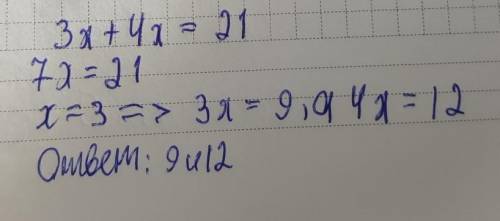 3x + 4x = 21
7x = 21
x = 3 => 3x = 9, а 4x = 12
Ответ: 9 и 12